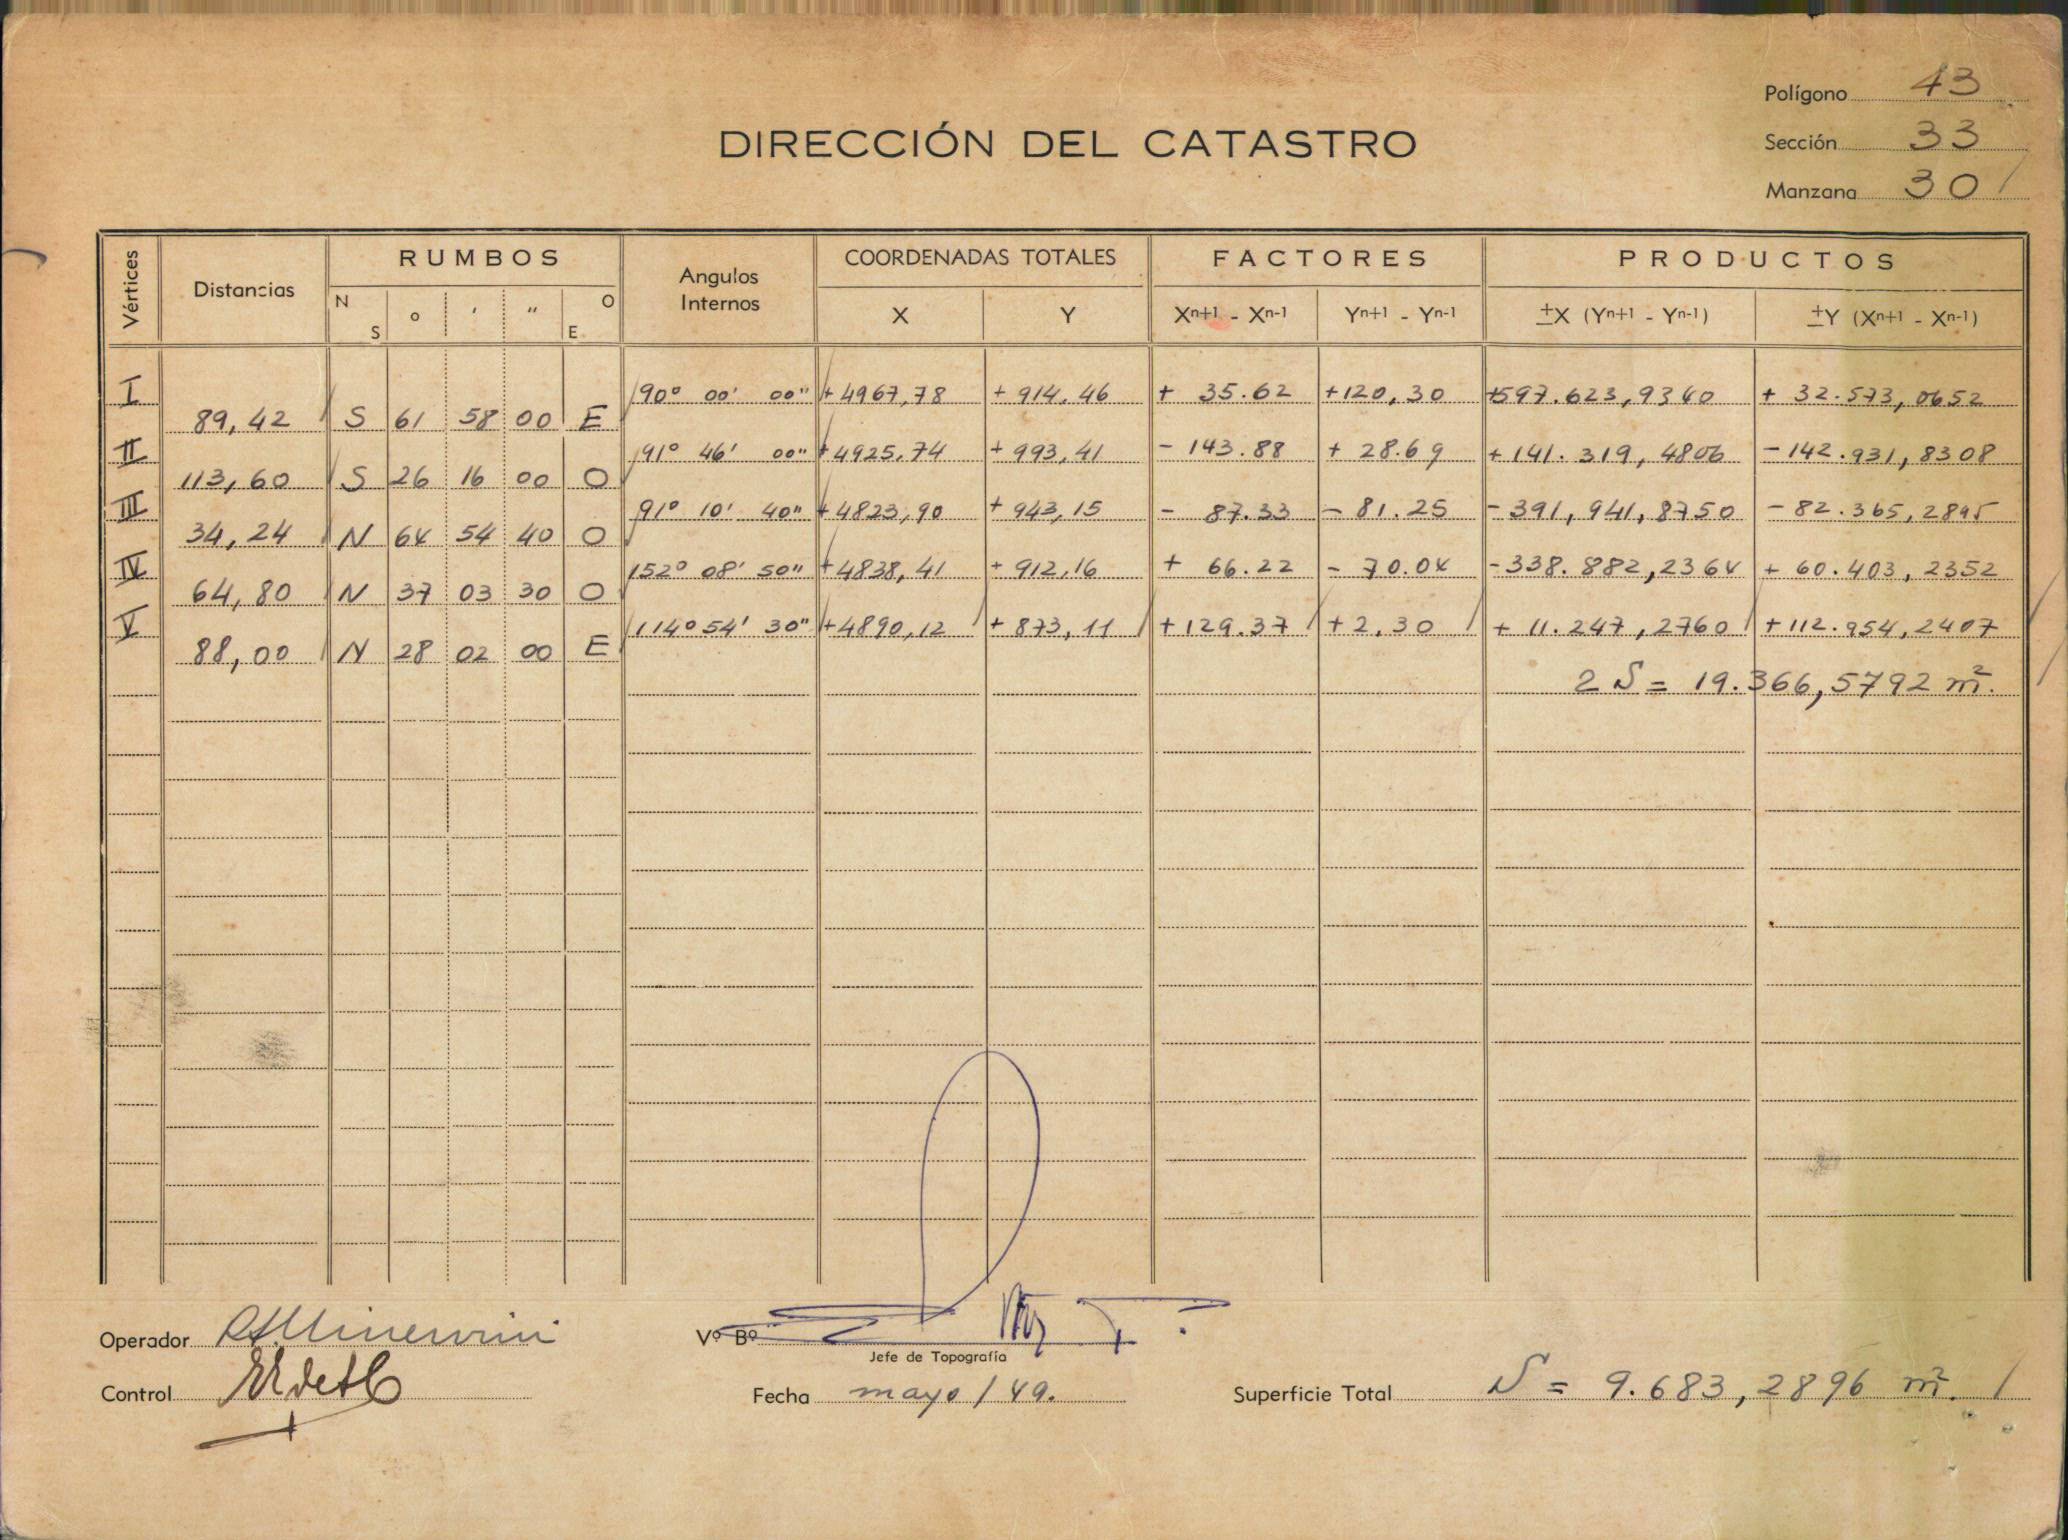 Polígono 43
DIRECCIÓN DEL CATASTRO
Sección 33
Manzana 30
Vértices Distancias RUMBOS Angulos Internos COORDENADAS TOTALES FACTORES PRODUCTOS
N S o ' " O E X Y Xn+1 - Xn-1 Yn+1 - Yn-1 ±X (Yn+1 - Yn-1) ±Y (Xn+1 - Xn-1)
I 90° 00' 00" +4967,78 + 914,46 + 35.62 +120,30 +597.623,9340 + 32.573,0652
89,42 S 61 58 00 E
II 91° 46' 00" +4925,74 + 993,41 - 143.88 + 28.69 +141.319,4806 -142.931,8308
113,60 S 26 16 00 O
III 91° 10' 40" +4823,90 + 943,15 - 87.33 - 81.25 -391,941,8750 - 82.365,2895
34,24 N 64 54 40 O
IV 152° 08' 50" +4838,41 + 912,16 + 66.22 - 70.04 -338.882,2364 + 60.403,2352
64,80 N 37 03 30 O
V 114° 54' 30" +4890,12 + 873,11 +129.37 +2,30 + 11.247,2760 +112.954,2407
88,00 N 28 02 00 E
2 S = 19.366,5792 m².
Operador Vº Bº
Jefe de Topografía
Control Fecha mayo/49. Superficie Total S = 9.683,2896 m².